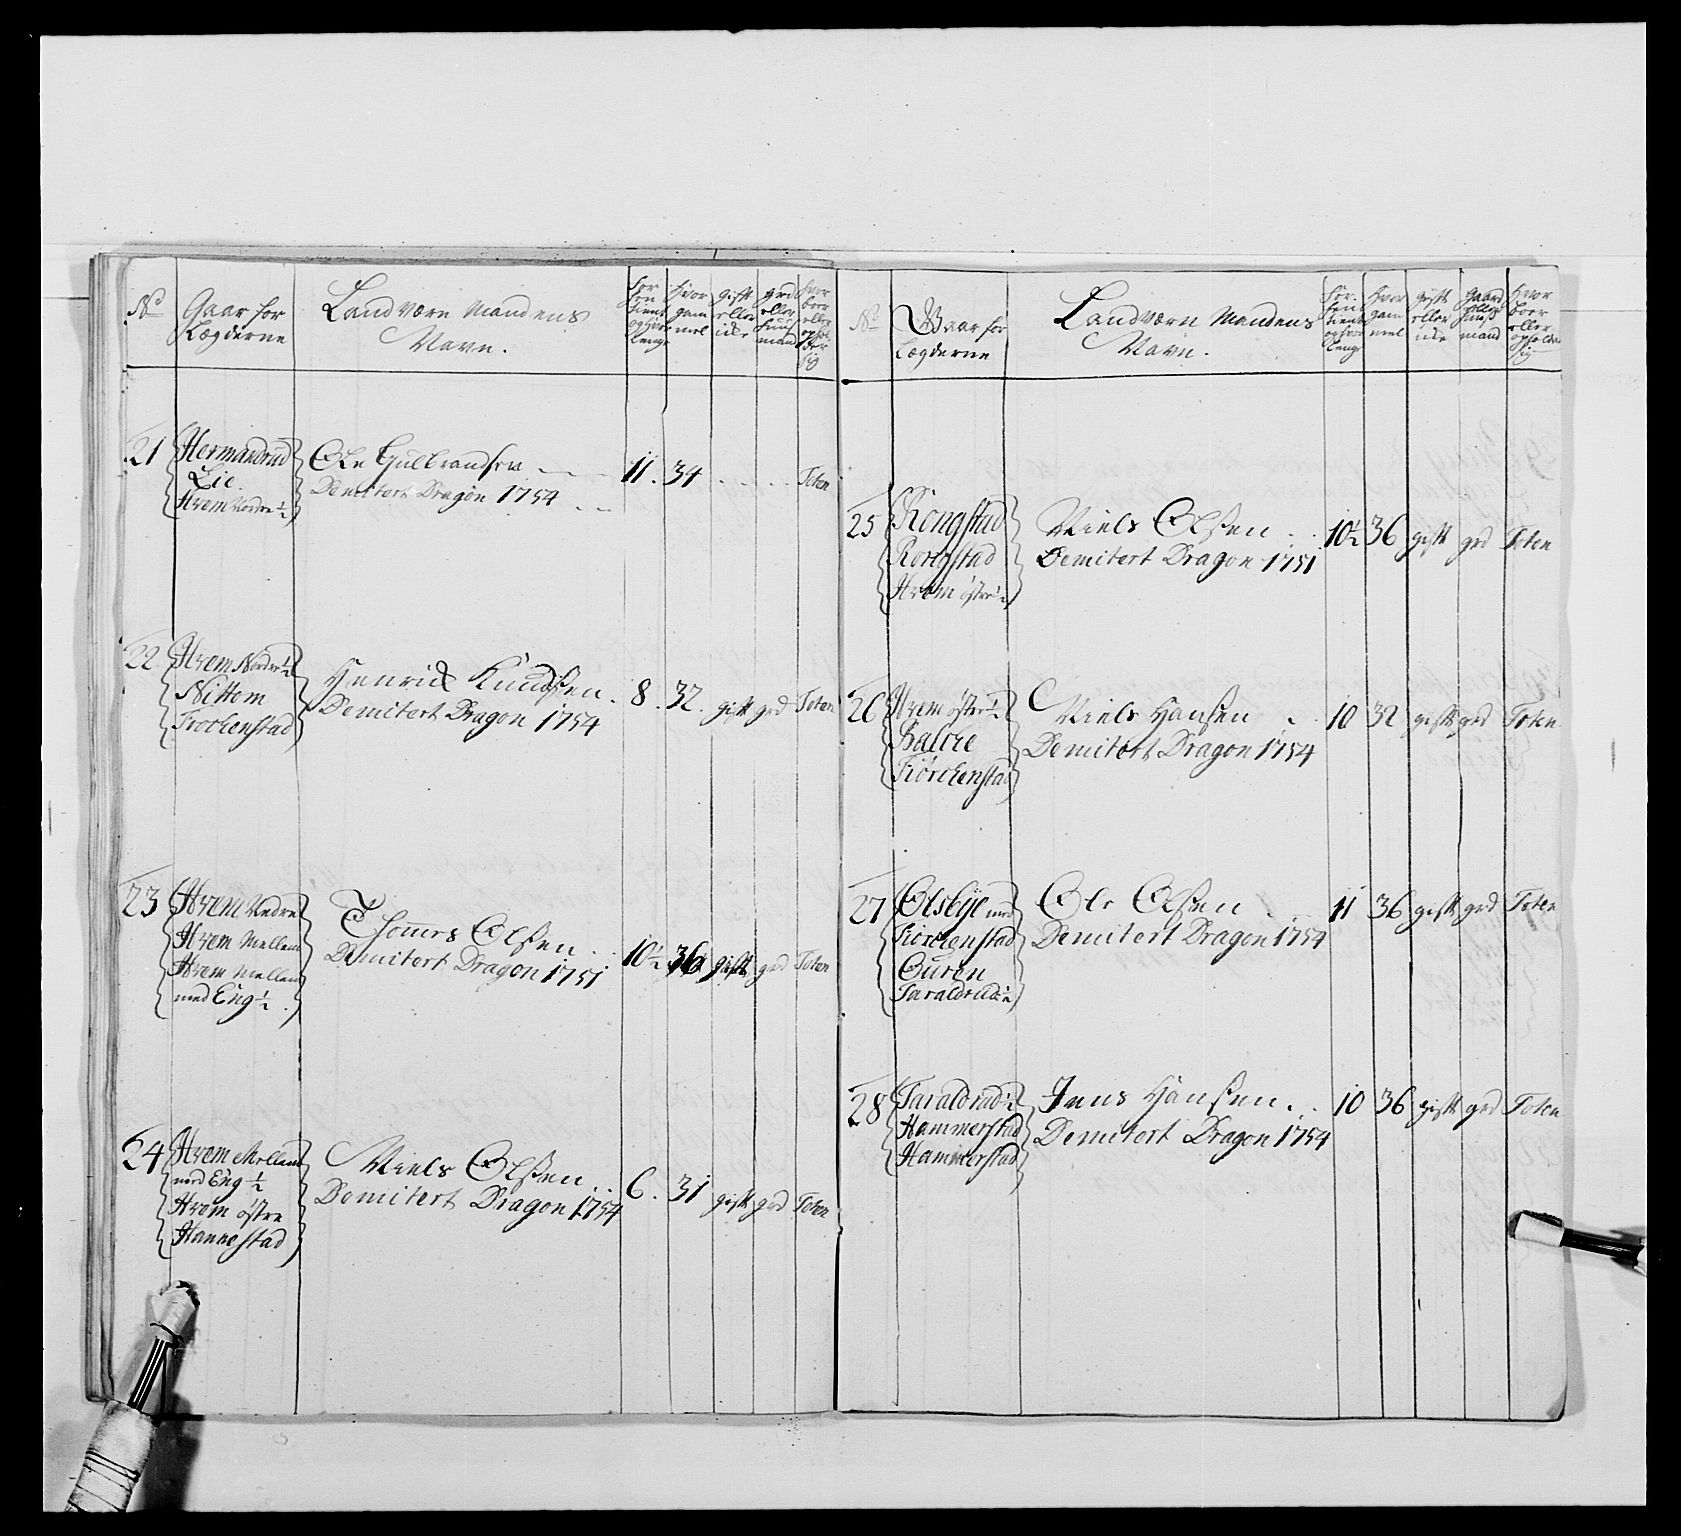 No
Gaar for
Lægderne
Landværn Mandens
Navn.
For
hen
tient
og hvor
lenge
Hvor
gam
mel
gift
eller
icke
grd
eller
huus
mand
Hvor
boer
eller
opholder
sig
21
Hermandrud
Lie.
Hrem Nordre 1/2
Ole Gulbrandsen
Demitert Dragon 1754
11. 34 Toten
22
Hrem Nordre 1/2
Nittom
Krochenstad
Henrick Knudsen.
Demitert Dragon 1754
8. 32. gift grd Toten
23
Hrem Nedre
Hrem Mellem
Hrem Mellem
med Eng 1/2.
Thomes Olsen
Demitert Dragon 1751
10 1/2 36 gift grd Toten
24
Hrem Mellem
med Eng 1/2
Hrem østre
Hannestad
Niels Olsen.
Demitert Dragon 1754
6. 31 gift grd Toten
No
Gaar for
Lægderne
Landværn Mandens
Navn.
For
hen
tient
og hvor
lenge
Hvor
gam
mel
gift
eller
icke
Gaard
eller
huuß
mand
Hvor
boer
eller
opholder
sig
25
Rongstad
Rongstad
Hrem østre 1/2
Niels Olsen
Demitert Dragon 1751
10 1/2 36 gift grd Toten
26
Hrem østre 1/2
Balcke
Kiørchenstad
Niels Hansen
Demitert Dragon 1754
10 32 gift grd Toten
27
Olsbye med
Kiorchenstad
Ouren
Taraldrud 1/2
Ole Olsen
Demitert Dragon 1754
11 36 gift grd Toten
28
Taraldrud 1/2
Hammerstad
Hammerstad
Jens Hansen.
Demitert Dragon 1754
10 36 gift grd Toten